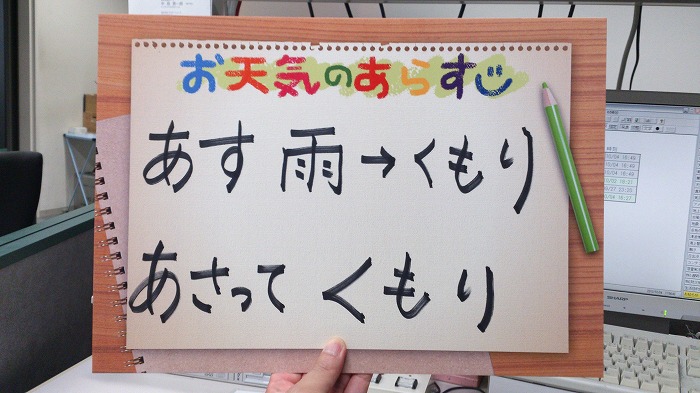 お天気のあらすじ
あす 雨→くもり
あさって くもり
SHARP